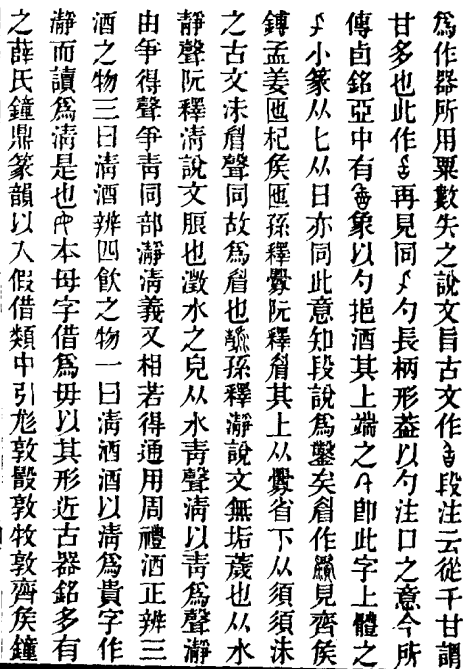 爲作器所用粟數失之說文旨古文作段注云從千甘謂
甘多也此作再見同勺長柄形葢以勺注口之意今所
傳卣銘亞中有象以勺挹酒其上端之卽此字上體之
小篆从匕从日亦同此意知段說爲鑿矣睂作見齊矦
鎛孟姜匜杞矦匜孫釋釁阮釋睂其上从釁省下从須須沬
之古文沬睂聲同故爲睂也孫釋瀞說文無垢薉也从水
靜聲阮釋淸說文朖也澂水之皃从水靑聲淸以靑爲聲瀞
由爭得聲爭靑同部瀞淸義又相若得通用周禮酒正辨三
酒之物三曰淸酒辨四飮之物一曰淸酒酒以淸爲貴字作
瀞而讀爲淸是也本母字借爲毋以其形近古器銘多有
之薛氏鐘鼎篆韻以入假借類中引敦敦牧敦齊矦鐘